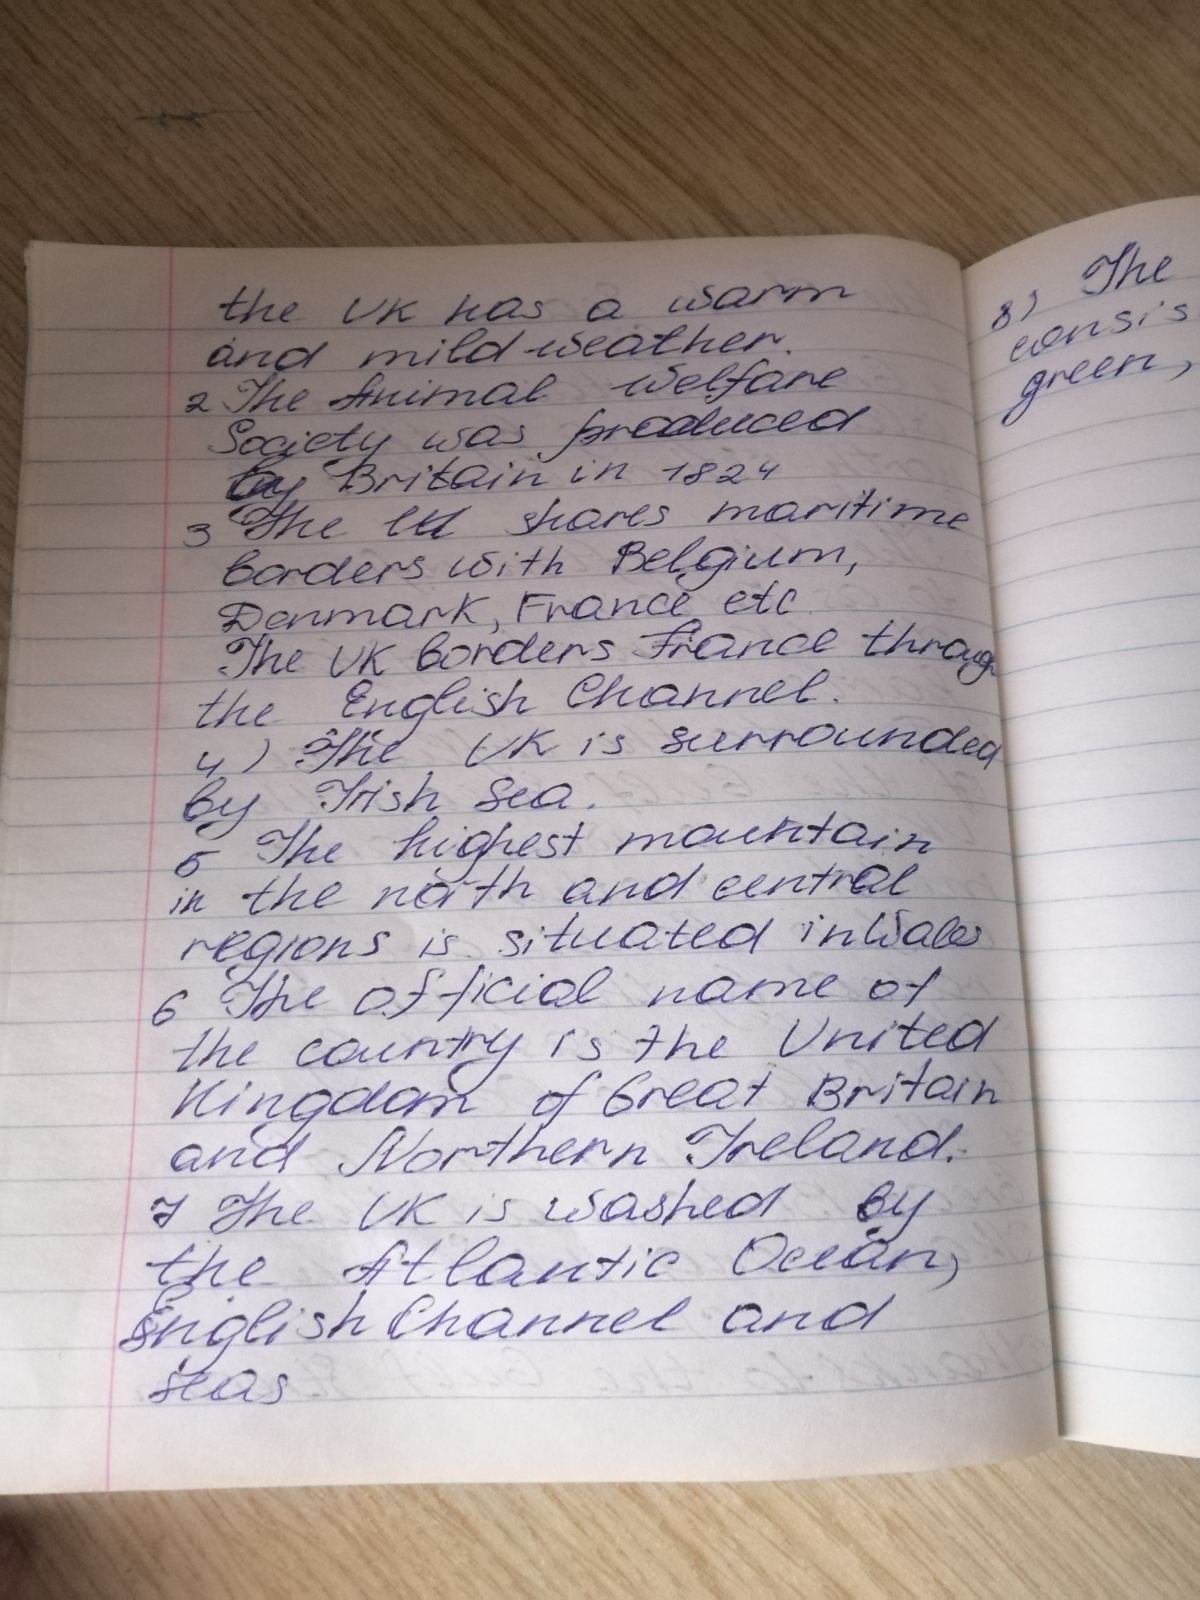 the UK has a warm
and mild weather.
2 The Animal Welfare
Society was produced
by Britain in 1824
3 The UK shares maritime
borders with Belgium,
Denmark, France etc
The UK borders France throug
the English Channel.
4) The UK is surrounded
by Irish Sea.
5 The highest mountain
in the north and central
regions is situated in Wales
6 The official name of
the country is the United
Kingdom of Great Britain
and Northern Ireland.
7 The UK is washed by
the Atlantic Ocean,
English Channel and
seas
8) The
consis
green,